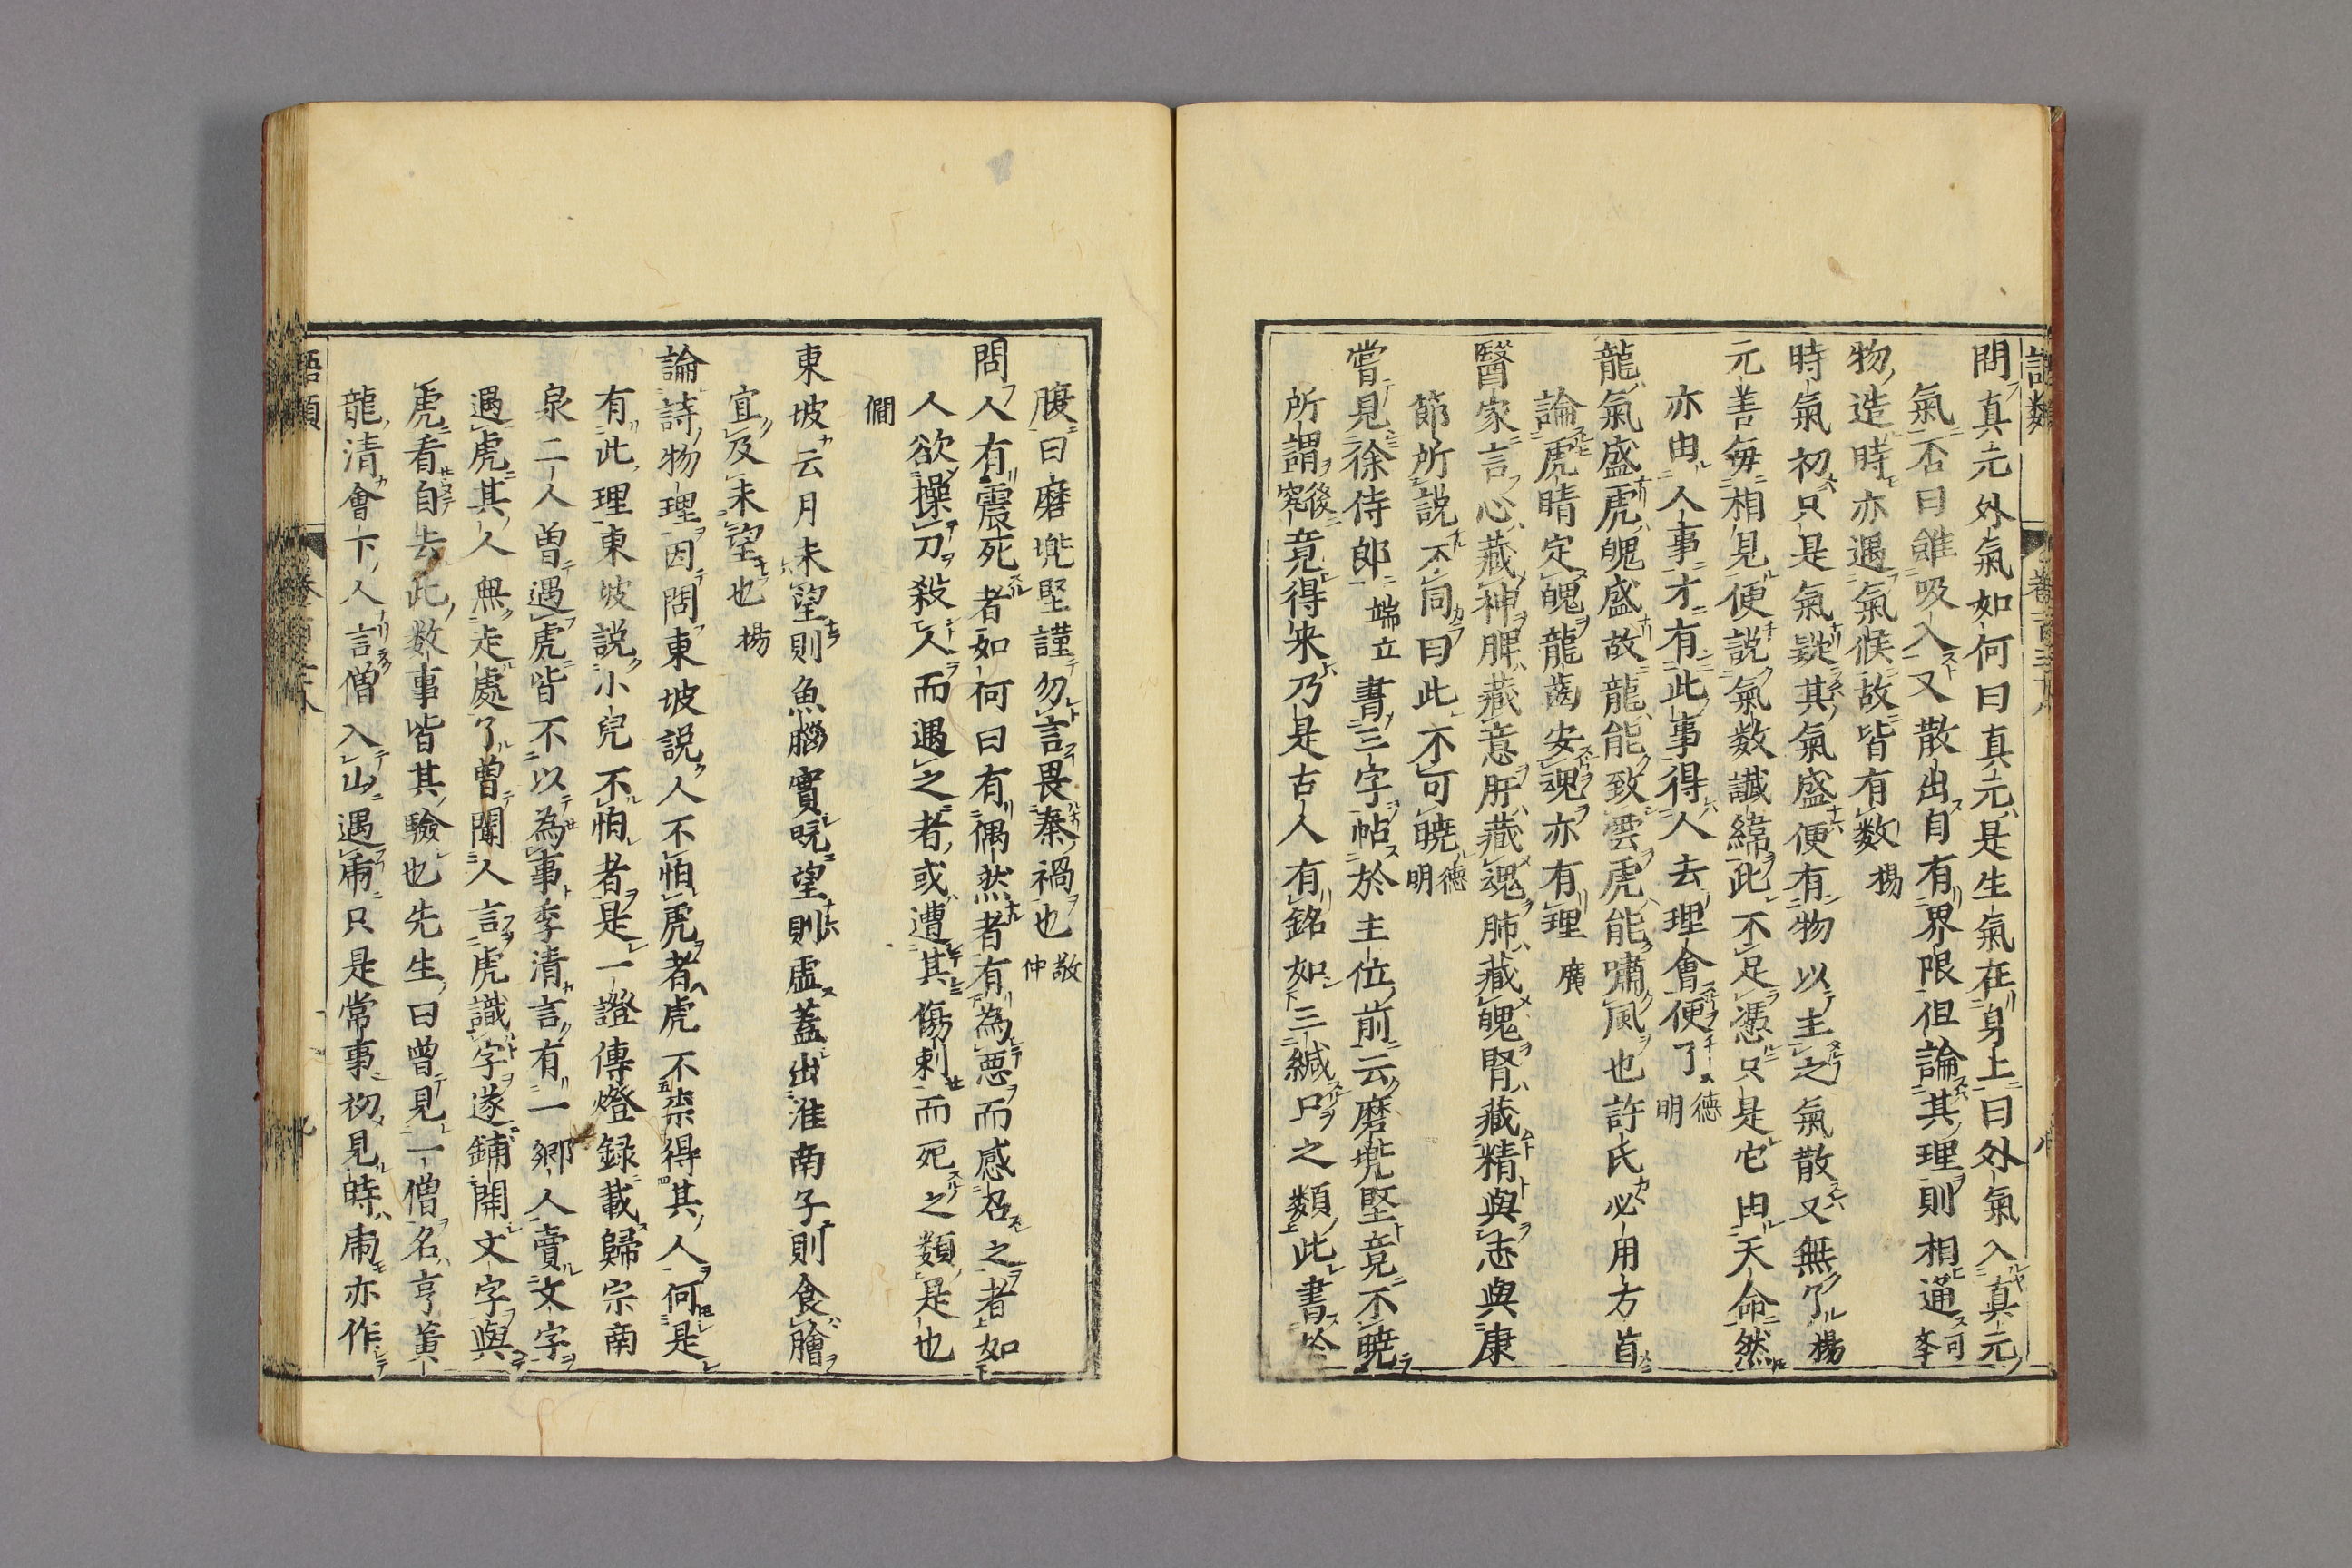 語類
卷一百三十八
問真元外氣如何曰真元是生氣在身上曰外氣入真元
氣否曰雖吸入又散出自有界限但論其理則相通 可李
物造時亦遇氣候故皆有數 楊
時氣初只是氣疑其氣盛便有物以主之氣散又無了 楊
元善每相見便說氣数讖緯此不足憑只是它由天命然
亦由人事才有此事得人去理會便了 德明
龍氣盛虎魄盛故龍能致雲虎能嘯風也許氏必用方首
論虎睛定魄龍齒安魂亦有理 廣
醫家言心藏神脾藏意肝藏魂肺藏魄腎藏精與志與康
節所説不同曰此不可曉 德明
嘗見徐侍郎 端立 書三字帖於主位前云磨兠堅竟不曉
所謂 後究竟得来乃是古人有銘如三緘口之類此書於
腹曰磨兠堅謹勿言畏秦禍也 敬仲
問人有震死者如何曰有偶然者有為悪而感召之者如
人欲操刀殺人而遇之者或遭其傷刺而死之類是也
僩
東坡云月未望則魚腦實旣望則虚蓋出淮南子則食膾
宜及未望也 楊
論詩物理因問東坡説人不怕虎者虎不柰得其人何是
有此理東坡説小兒不怕者是一證傳燈録載歸宗南
泉二人曽遇虎皆不以為事李清言有一鄉人賣文字
遇虎其人無走處了曽聞人言虎識字遂鋪開文字與
虎看自去此数事皆其驗也先生曰曽見一僧名亨黃
龍清會下人言僧入山遇虎只是常事初見時虎亦作
語類